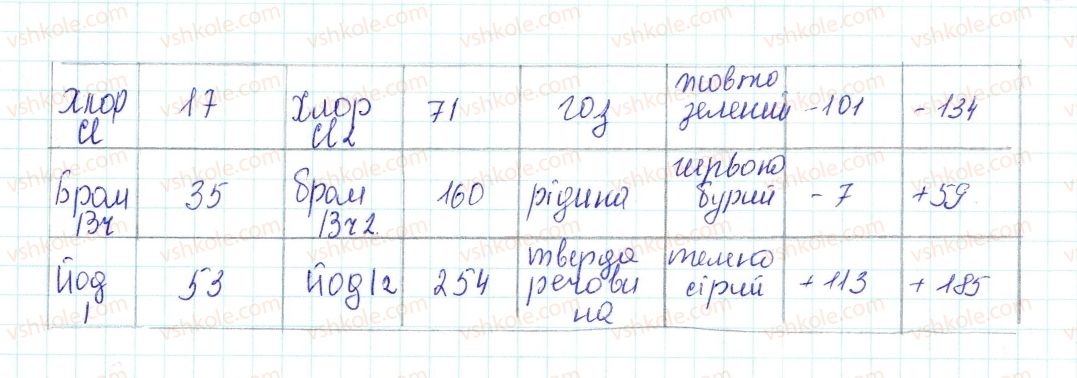 Хлор Cl 17 Хлор Cl2 71 газ жовто зелений -101 -134
Бром Br 35 Бром Br2 160 рідина червоно бурий -7 +59
Йод I 53 Йод I2 254 тверда речови на темно сірий +113 +185
vshkole.com